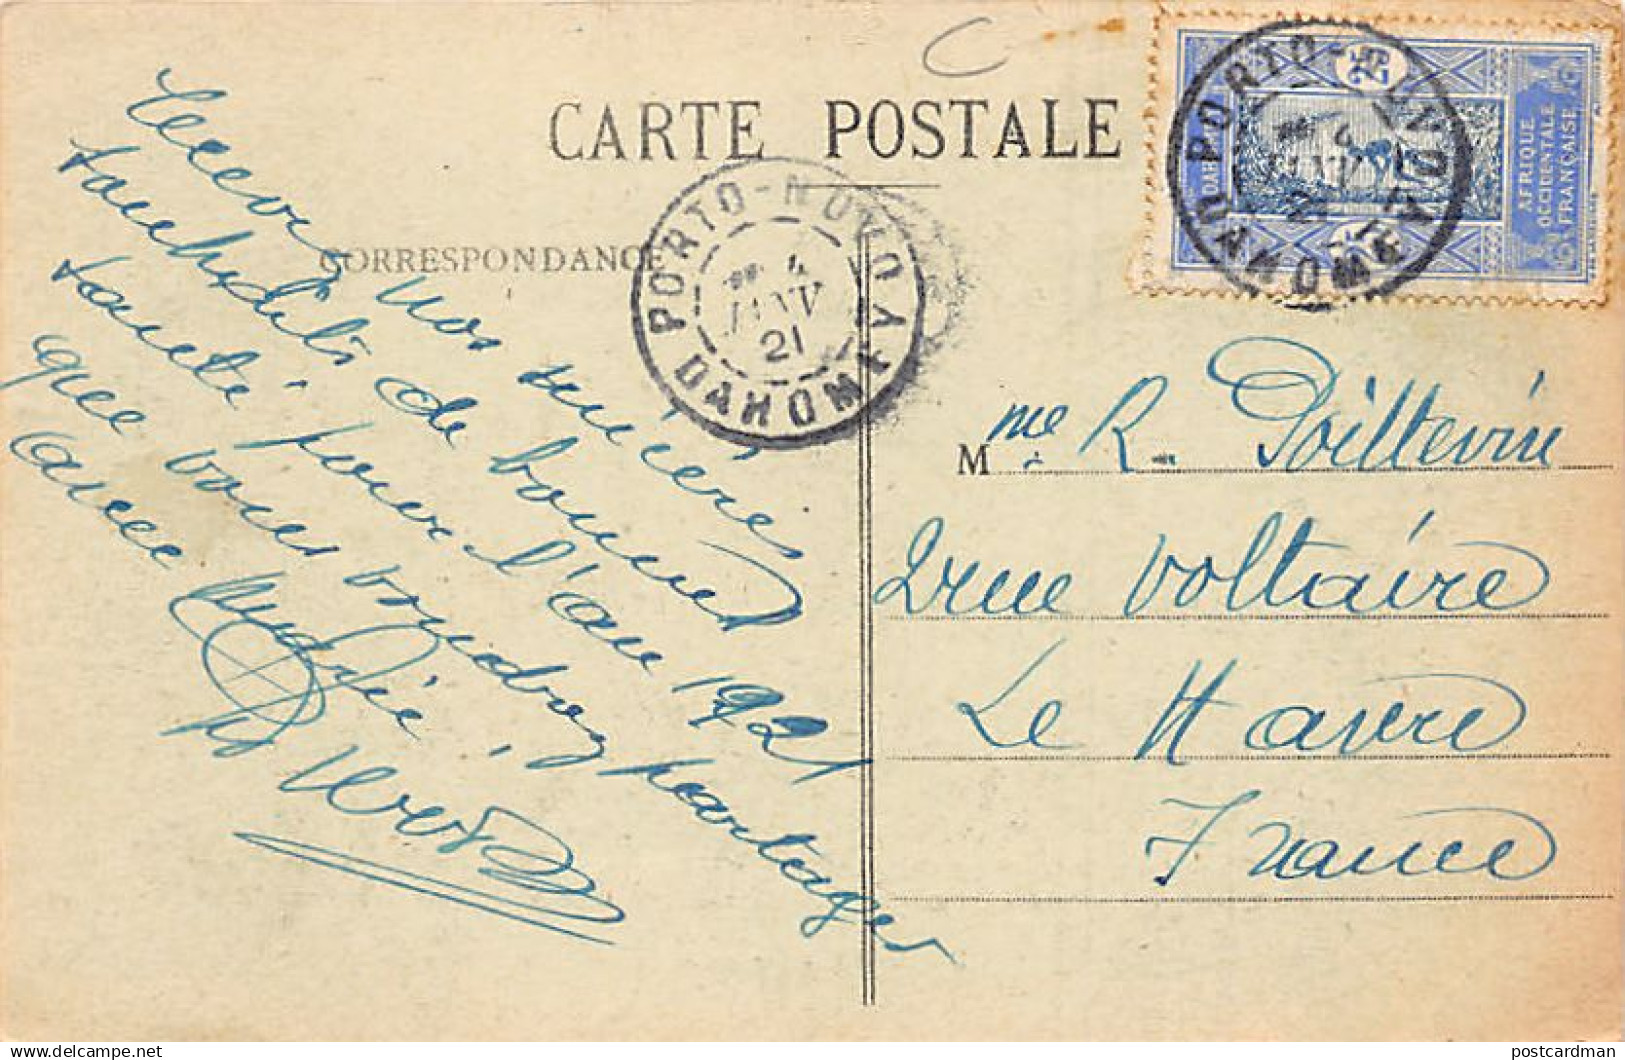 CARTE POSTALE
CORRESPONDANCE
Recevez nos sincères
souhaits de bonne
santé pour l'an 1921
que vous voudrez partager
avec
PORTO-NOVO
4
JANV
21
DAHOMEY
PORTO-NOVO
JANV
DAHOMEY
25
AFRIQUE
OCCIDENTALE
FRANÇAISE
Mme R. Poittevin
2 rue Voltaire
Le Havre
France
postcardman